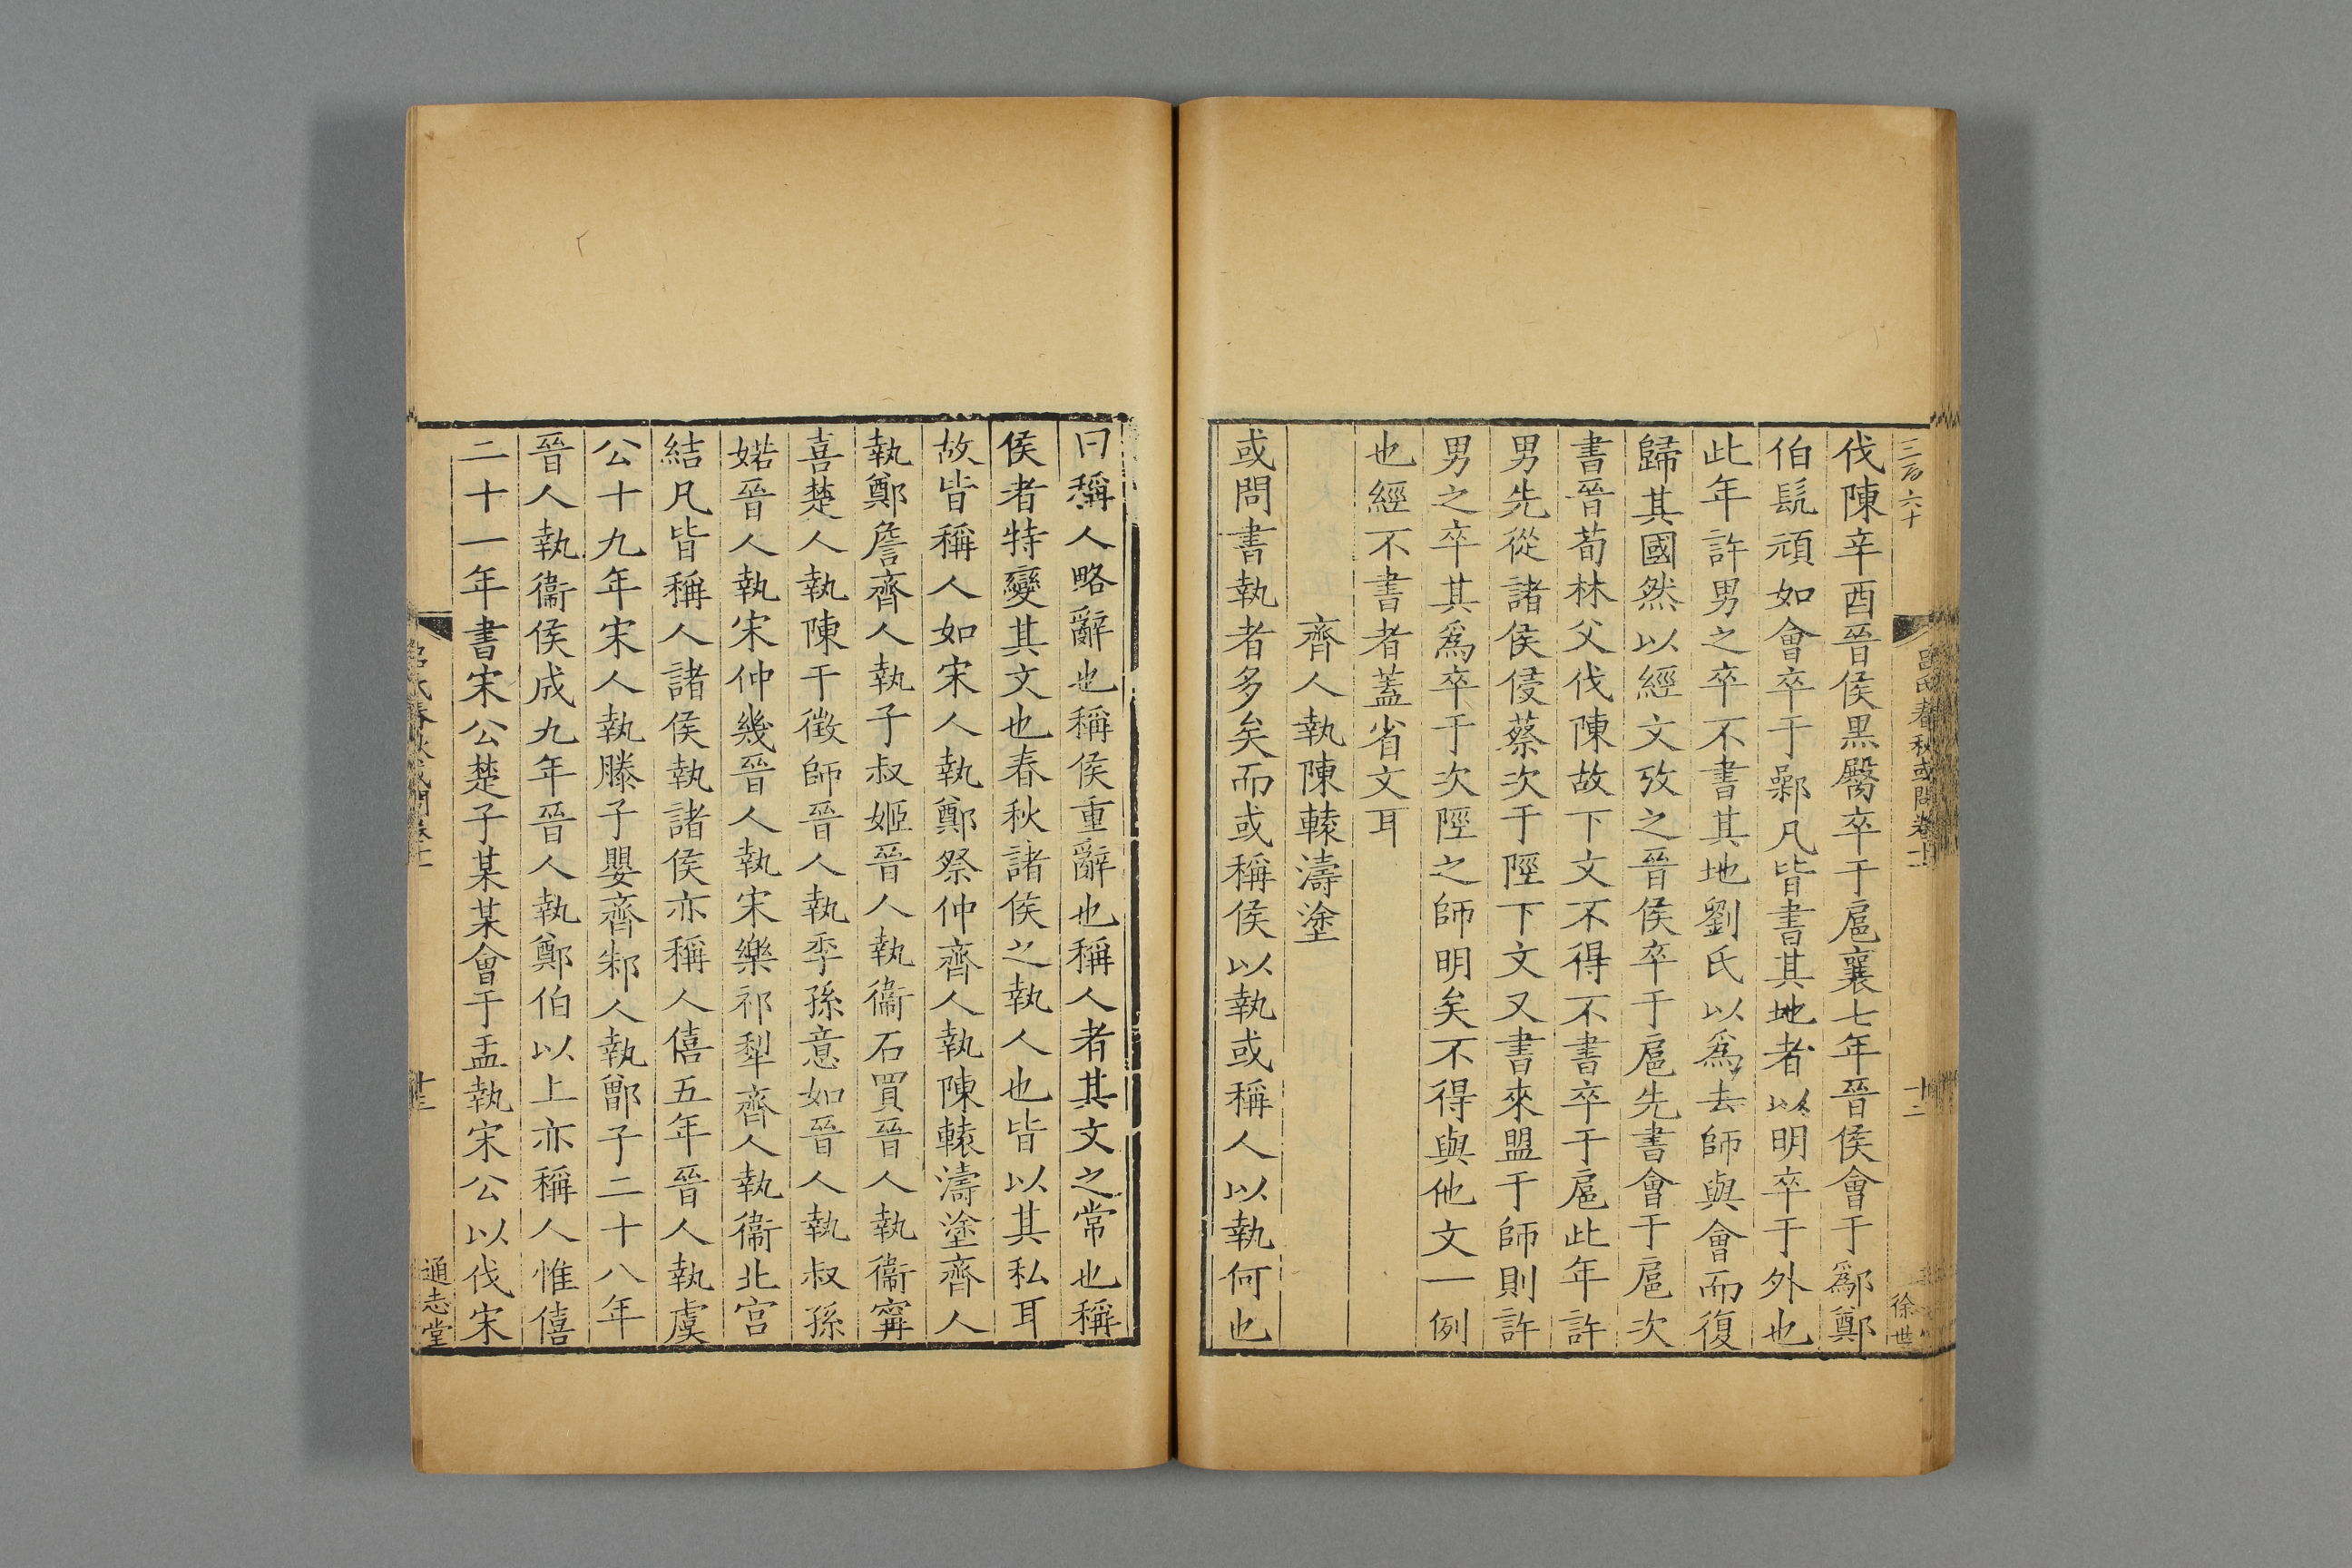 三百六十
呂氏春秋或問卷十一
十二
徐世
伐陳辛酉晉侯黒臀卒于扈襄七年晉侯會于鄬鄭
伯髡頑如會卒于鄵凡皆書其地者以明卒于外也
此年許男之卒不書其地劉氏以爲去師與會而復
歸其國然以經文攷之晉侯卒于扈先書會于扈次
書晉荀林父伐陳故下文不得不書卒于扈此年許
男先從諸侯侵蔡次于陘下文又書來盟于師則許
男之卒其爲卒于次陘之師明矣不得與他文一例
也經不書者蓋省文耳
齊人執陳轅濤塗
或問書執者多矣而或稱侯以執或稱人以執何也
曰稱人略辭也稱侯重辭也稱人者其文之常也稱
侯者特變其文也春秋諸侯之執人也皆以其私耳
故皆稱人如宋人執鄭祭仲齊人執陳轅濤塗齊人
執鄭詹齊人執子叔姬晉人執衞石買晉人執衞甯
喜楚人執陳干徵師晉人執季孫意如晉人執叔孫
婼晉人執宋仲幾晉人執宋樂祁犁齊人執衞北宮
結凡皆稱人諸侯執諸侯亦稱人僖五年晉人執虞
公十九年宋人執滕子嬰齊邾人執鄫子二十八年
晉人執衞侯成九年晉人執鄭伯以上亦稱人惟僖
二十一年書宋公楚子某某會于盂執宋公以伐宋
呂氏春秋或問卷十一
十三
通志堂